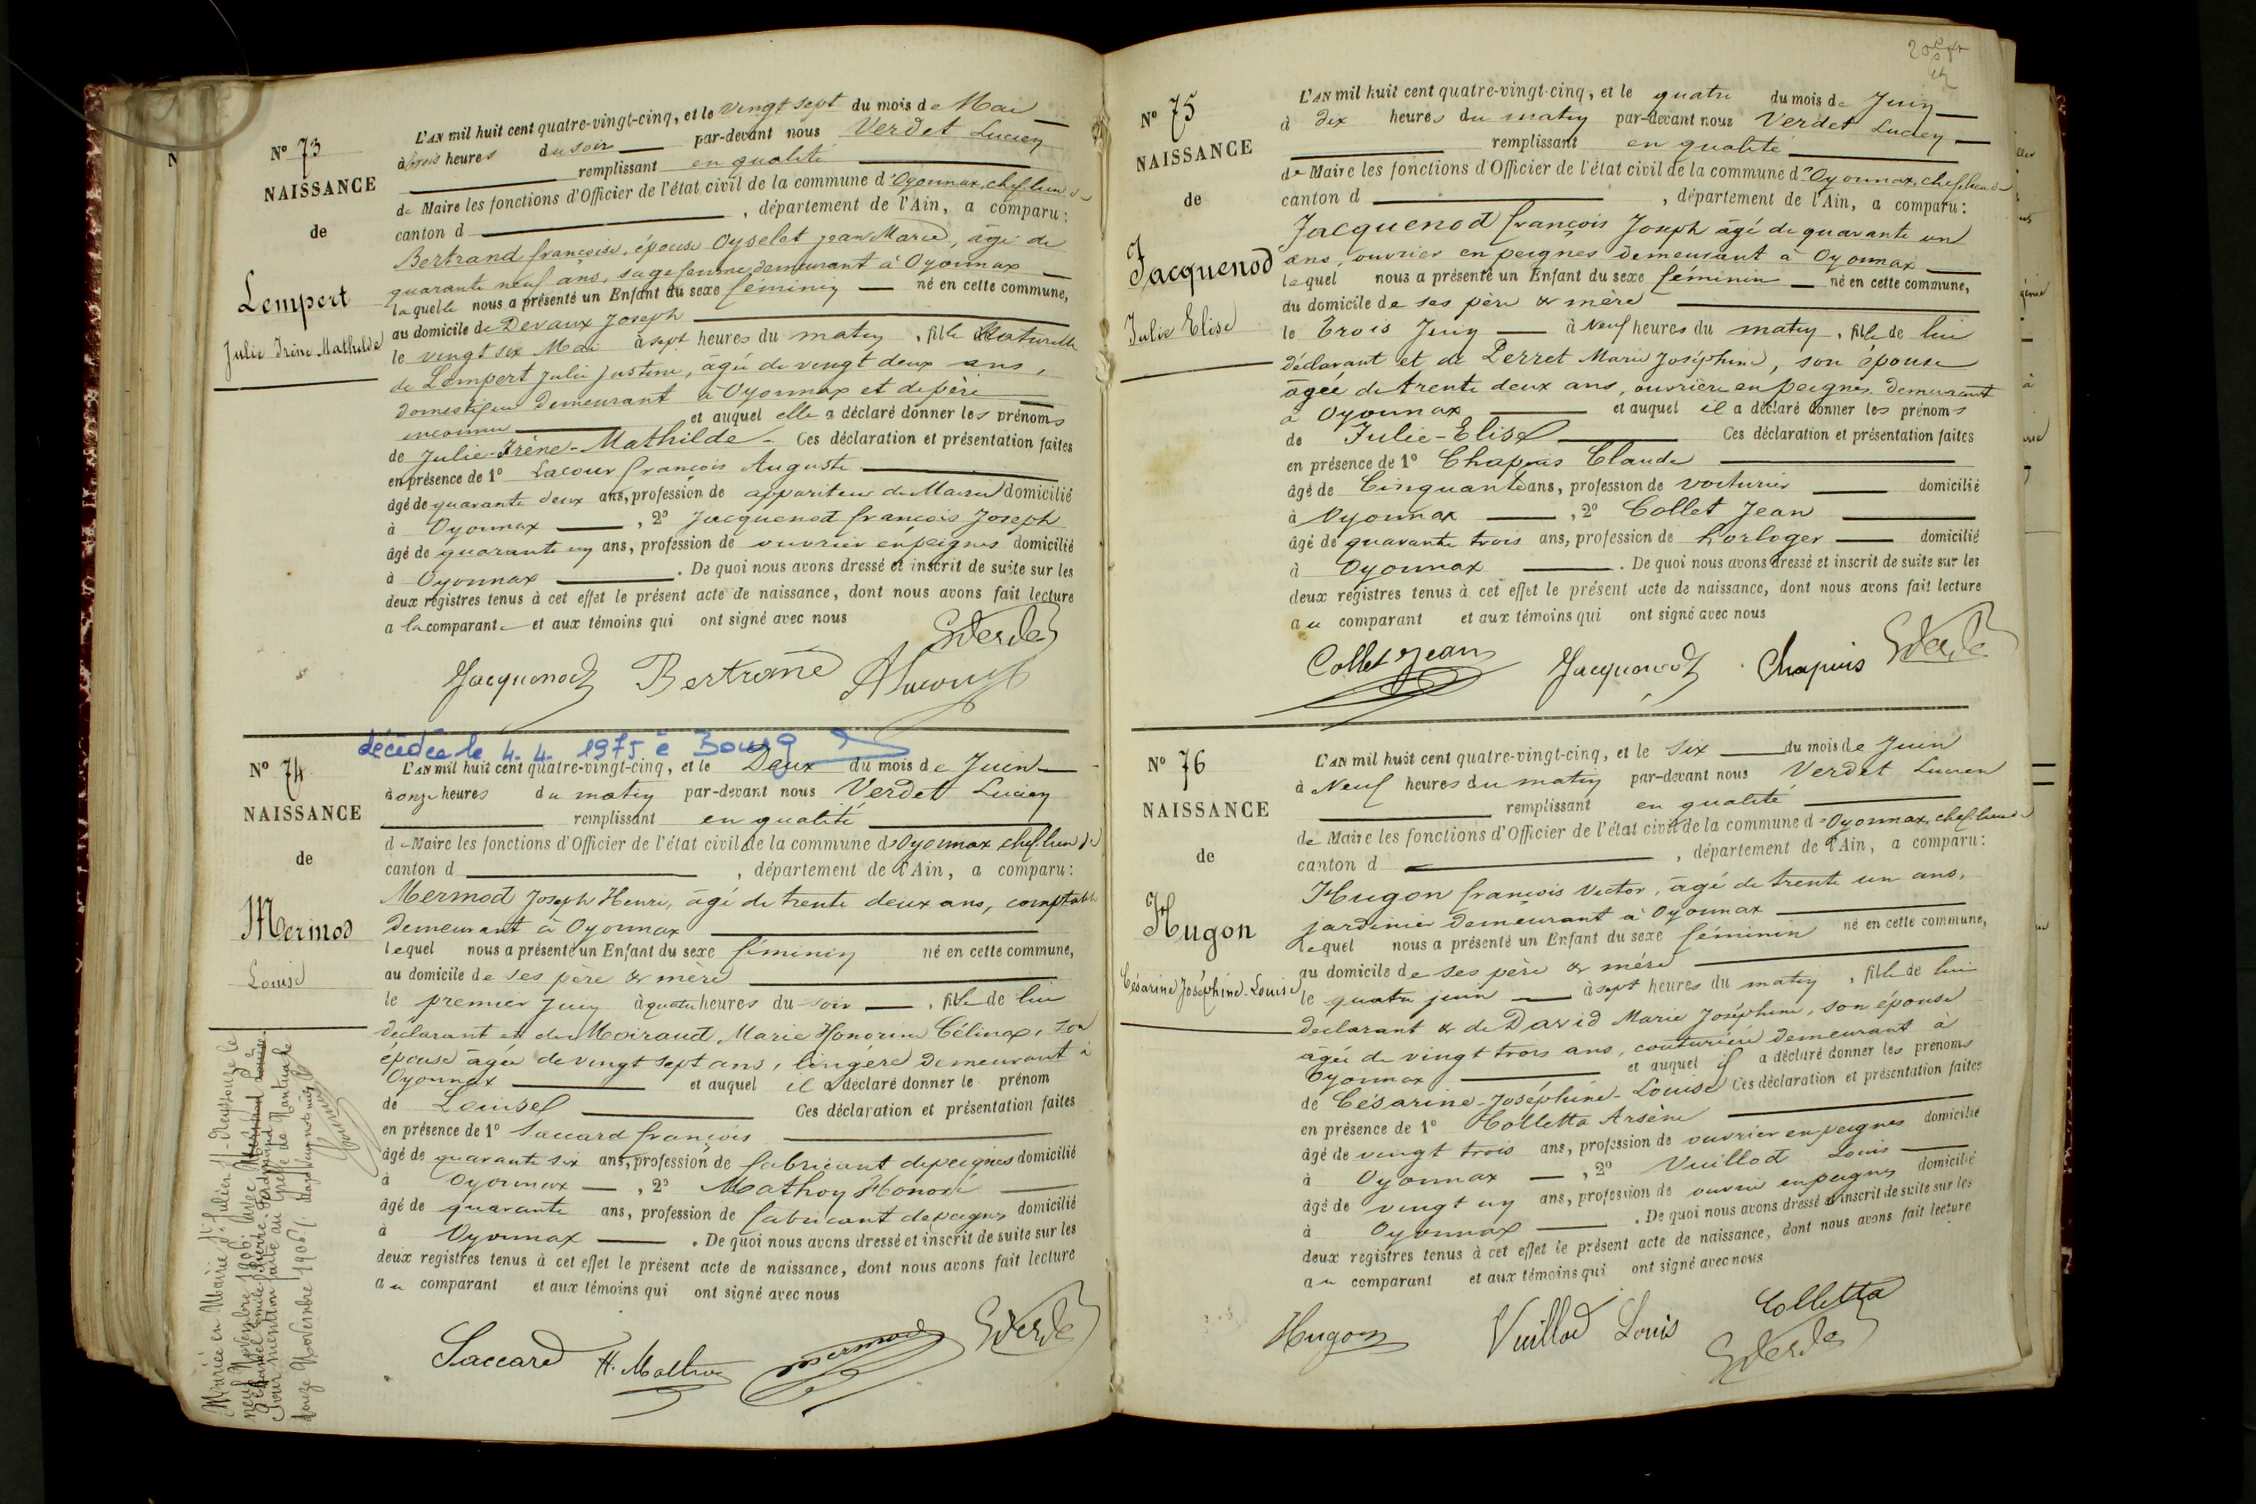 N° 73
NAISSANCE
de
Lempert
Julie Irène Mathilde
L'AN mil huit cent quatre-vingt-cinq, et le vingt sept du mois de Mai
à trois heures du soir par-devant nous Verdet Lucien
remplissant en qualité
de Maire les fonctions d'Officier de l'état civil de la commune d'Oyonnax, chef lieu de
canton d , département de l'Ain, a comparu :
Bertrand françoise, épouse Oyselet jean Marie, âgé de
quarante neuf ans, sage femme, demeurant à Oyonnax
laquelle nous a présenté un Enfant du sexe féminin né en cette commune,
au domicile de Devaux Joseph
le vingt six Mai à sept heures du matin , fille Naturelle
de Lempert Julie Justine, âgée de vingt deux ans,
domestique demeurant à Oyonnax et de père
inconnu et auquel elle a déclaré donner les prénoms
de Julie-Irène-Mathilde - Ces déclaration et présentation faites
en présence de 1° Lacour françois Auguste
âgé de quarante deux ans, profession de appariteur de Mairie domicilié
à Oyonnax , 2° Jacquenod françois Joseph
âgé de quarante un ans, profession de ouvrier en peignes domicilié
à Oyonnax . De quoi nous avons dressé et inscrit de suite sur les
deux registres tenus à cet effet le présent acte de naissance, dont nous avons fait lecture
a la comparante et aux témoins qui ont signé avec nous
Jacquenod Bertrand ALacour
décédée le 4. 4. 1975 à Bourg
N° 74
NAISSANCE
de
Mermod
Louise
L'AN mil huit cent quatre-vingt-cinq, et le Deux du mois de Juin
à onze heures du matin par-devant nous Verdet Lucien
remplissant en qualité
de Maire les fonctions d'Officier de l'état civil de la commune d'Oyonnax chef lieu de
canton d , département de l'Ain, a comparu :
Mermod Joseph Henri, âgé de trente deux ans, comptable
demeurant à Oyonnax
lequel nous a présenté un Enfant du sexe féminin né en cette commune,
au domicile de ses père & mère
le premier Juin à quatre heures du soir , fille de lui
déclarant et de Moiraud, Marie Honorine Célina, son
épouse âgée de vingt sept ans, lingère demeurant à
Oyonnax et auquel il a déclaré donner le prénom
de Louise Ces déclaration et présentation faites
en présence de 1° Saccard françois
âgé de quarante six ans, profession de fabricant de peignes domicilié
à Oyonnax , 2° Mathoy Honoré
âgé de quarante ans, profession de fabricant de peignes domicilié
à Oyonnax . De quoi nous avons dressé et inscrit de suite sur les
deux registres tenus à cet effet le présent acte de naissance, dont nous avons fait lecture
au comparant et aux témoins qui ont signé avec nous
Saccard H. Mathoy Mermod
Mariée en Mairie St Julien S-Reyssouze le
neuf Novembre 1906, avec
Emile Pierre Ferdinand
Pour mention faite au greffe de Nantua le
douze Novembre 1906
N° 75
NAISSANCE
de
Jacquenod
Julie Elise
L'AN mil huit cent quatre-vingt-cinq, et le quatre du mois de Juin
à dix heures du matin par-devant nous Verdet Lucien
remplissant en qualité
de Maire les fonctions d'Officier de l'état civil de la commune d'Oyonnax, chef lieu de
canton d , département de l'Ain, a comparu :
Jacquenod françois Joseph âgé de quarante un
ans, ouvrier en peignes demeurant à Oyonnax
lequel nous a présenté un Enfant du sexe féminin né en cette commune,
au domicile de ses père & mère
le Trois Juin à Neuf heures du matin , fille de lui
déclarant et de Perret Marie Joséphine, son épouse
âgée de trente deux ans, ouvrière en peignes demeurant
à Oyonnax et auquel il a déclaré donner les prénoms
de Julie-Elise Ces déclaration et présentation faites
en présence de 1° Chapuis Claude
âgé de Cinquante ans, profession de voiturier domicilié
à Oyonnax , 2° Collet Jean
âgé de quarante trois ans, profession de horloger domicilié
à Oyonnax . De quoi nous avons dressé et inscrit de suite sur les
deux registres tenus à cet effet le présent acte de naissance, dont nous avons fait lecture
au comparant et aux témoins qui ont signé avec nous
Collet Jean Jacquenod Chapuis
N° 76
NAISSANCE
de
Hugon
Césarine Joséphine-Louise
L'AN mil huit cent quatre-vingt-cinq, et le Six du mois de Juin
à Neuf heures du matin par-devant nous Verdet Lucien
remplissant en qualité
de Maire les fonctions d'Officier de l'état civil de la commune d'Oyonnax, chef lieu de
canton d , département de l'Ain, a comparu :
Hugon françois Victor, âgé de trente un ans,
jardinier demeurant à Oyonnax
lequel nous a présenté un Enfant du sexe féminin né en cette commune,
au domicile de ses père & mère
le quatre juin à sept heures du matin , fille de lui
déclarant & de David Marie Joséphine, son épouse
âgée de vingt trois ans, couturière demeurant à
Oyonnax et auquel il a déclaré donner les prénoms
de Césarine-Joséphine-Louise Ces déclaration et présentation faites
en présence de 1° Colletta Arsène
âgé de vingt trois ans, profession de ouvrier en peignes domicilié
à Oyonnax , 2° Vuillod Louis
âgé de vingt un ans, profession de ouvrier en peignes domicilié
à Oyonnax . De quoi nous avons dressé et inscrit de suite sur les
deux registres tenus à cet effet le présent acte de naissance, dont nous avons fait lecture
au comparant et aux témoins qui ont signé avec nous
Hugon Vuillod Louis Colletta